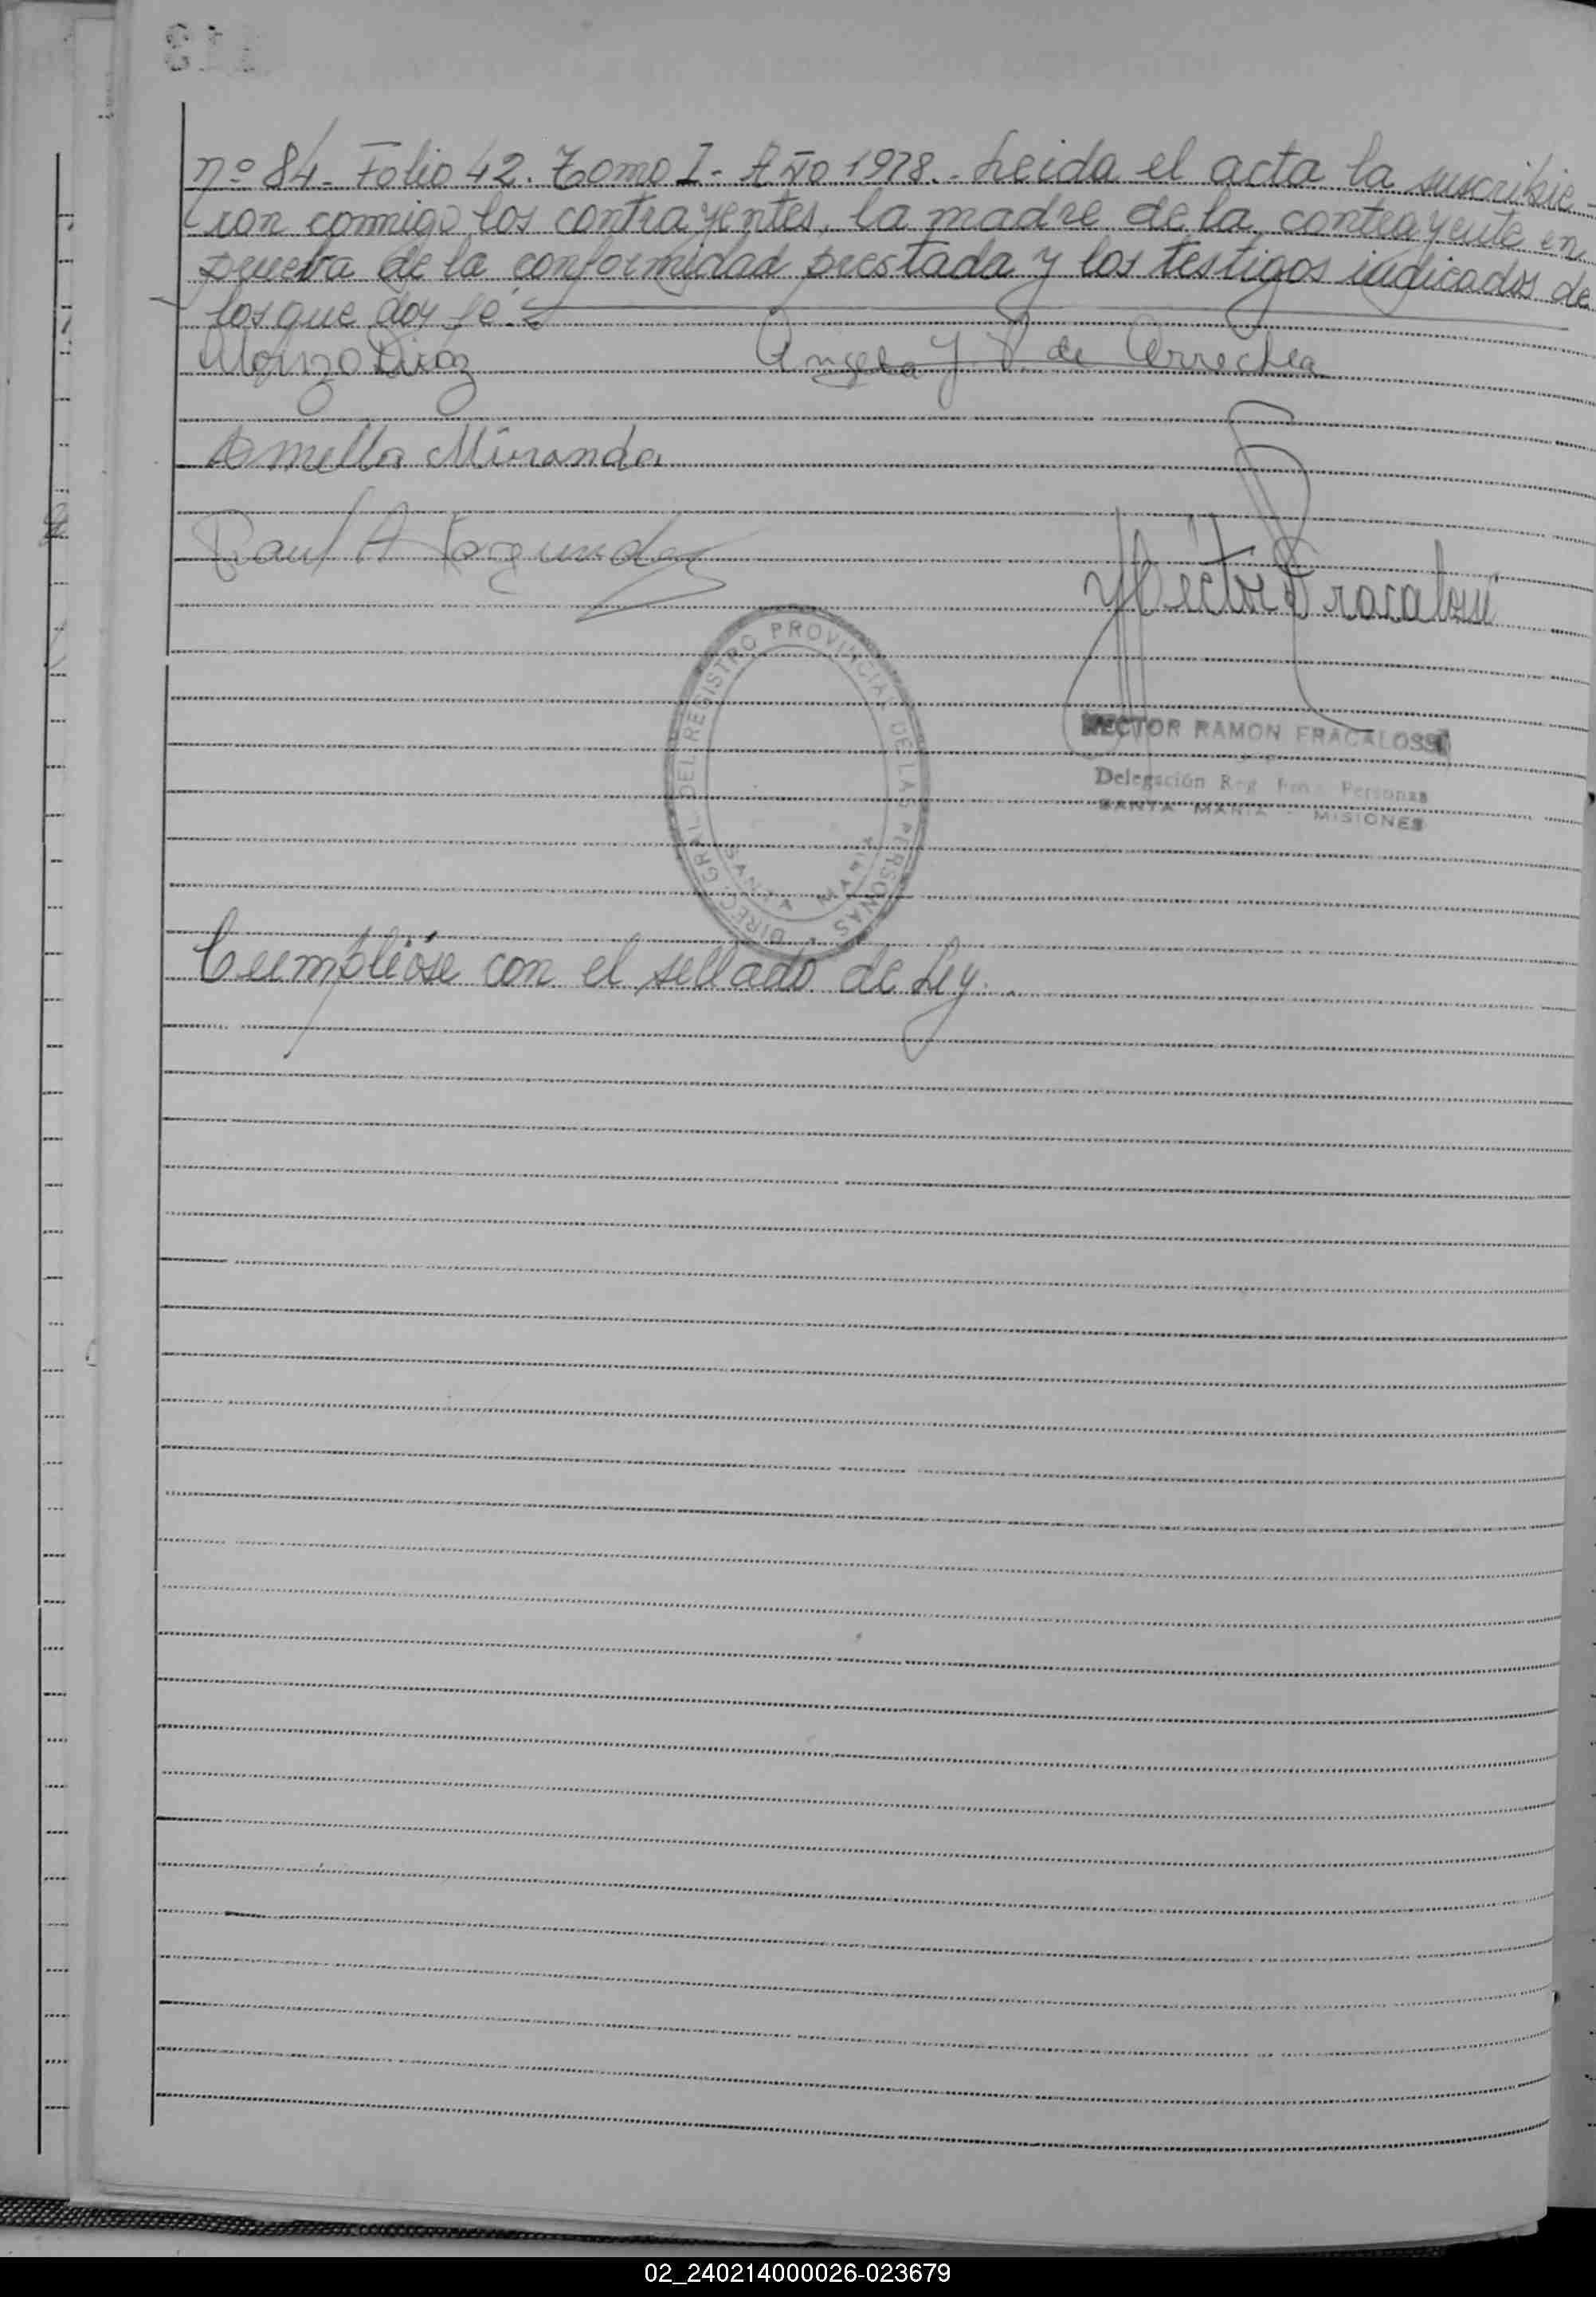 nº 84. Folio 42. Tomo I. Año 1978.. Leida el acta la suscribie-
ron conmigo los contrayentes, la madre de la contrayente en
prueba de la conformidad prestada y los testigos indicados de
los que doy fe.
Díaz
Angela J. de Arrechea
Miranda
Raul A
Héctor Fracalossi
DIREC. GRAL. DEL REGISTRO PROVINCIAL DE LAS PERSONAS
SANTA MARIA
HECTOR RAMON FRACALOSSI
Delegación Reg. Prov. Personas
SANTA MARIA - MISIONES
Cumplióse con el sellado de Ley.
02_240214000026-023679